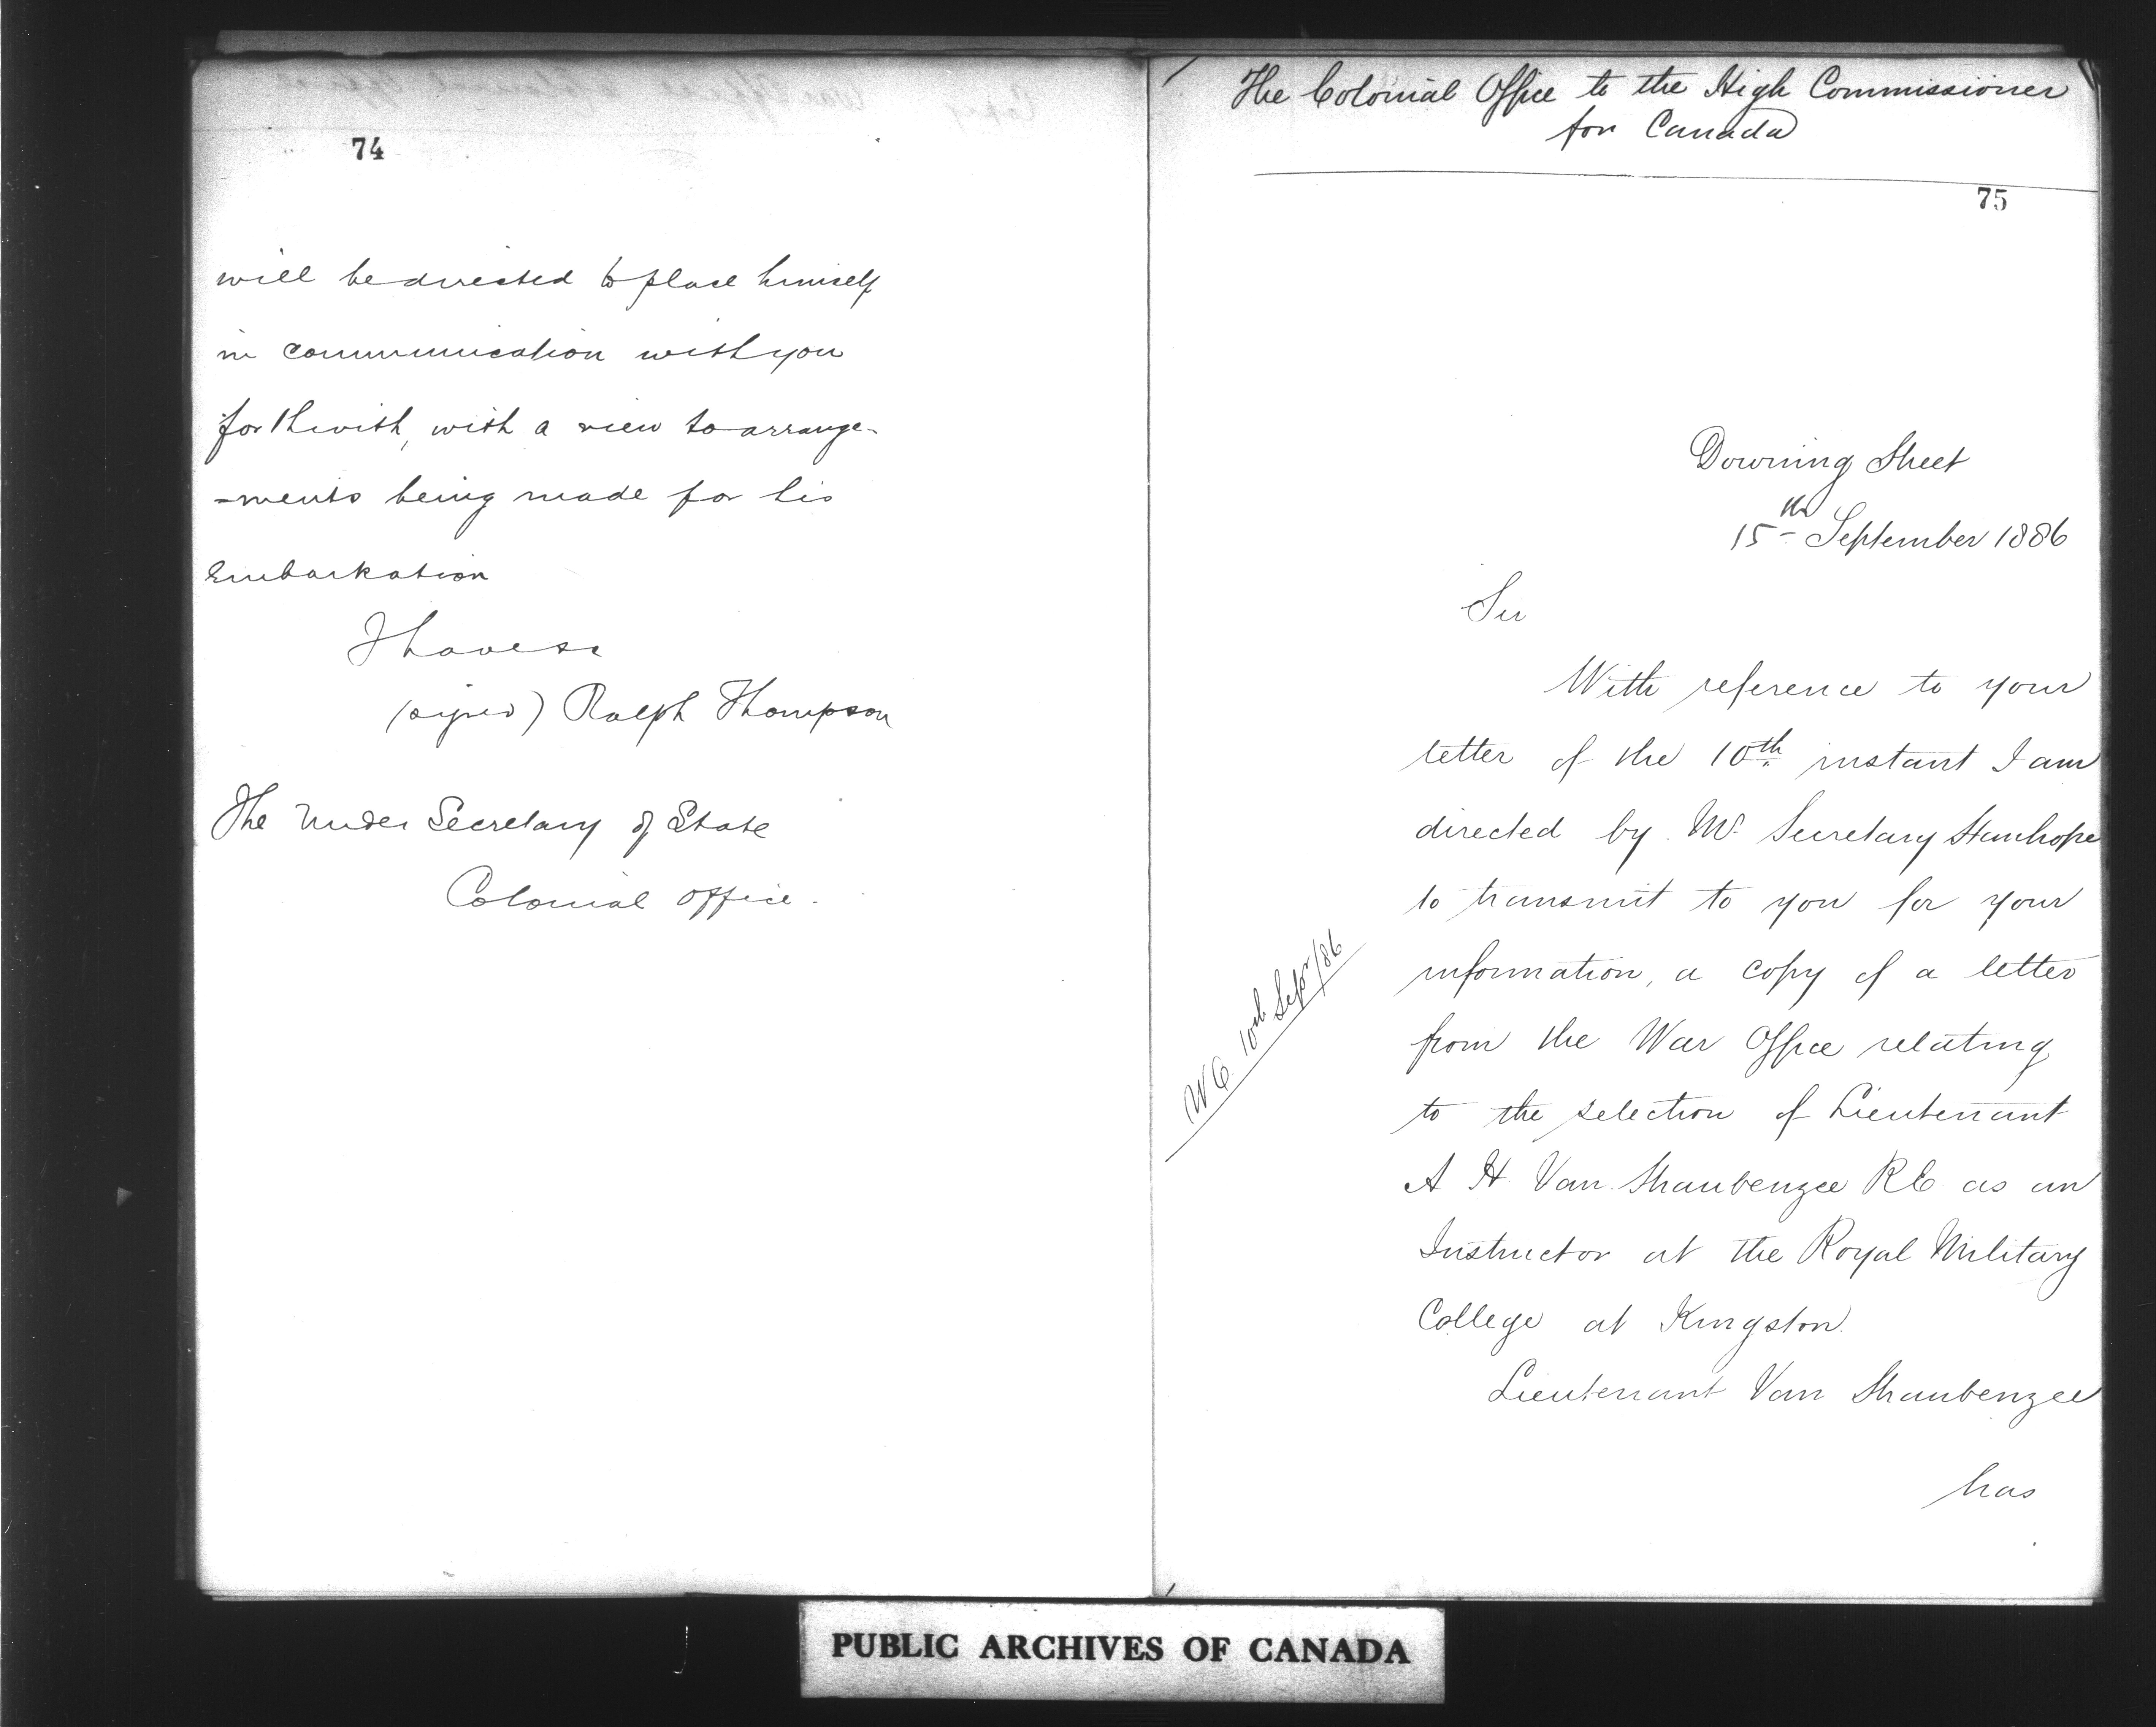 74
will be directed to place himself
in communication with you
forthwith, with a view to arrange-
-ments being made for his
Embarkation
I have &c
(signed) Ralph Thompson
The Under Secretary of State
Colonial Office.
The Colonial Office to the High Commissioner
for Canada
75
Downing Street
15th September 1886
Sir
With reference to your
letter of the 10th instant I am
directed by Mr Secretary Stanhope
to transmit to you for your
information, a copy of a letter
from the War Office relating
to the selection of Lieutenant
A H Van Straubenzee RE as an
Instructor at the Royal Military
College at Kingston.
Lieutenant Van Straubenzee
has
10th Sepr/86
PUBLIC ARCHIVES OF CANADA